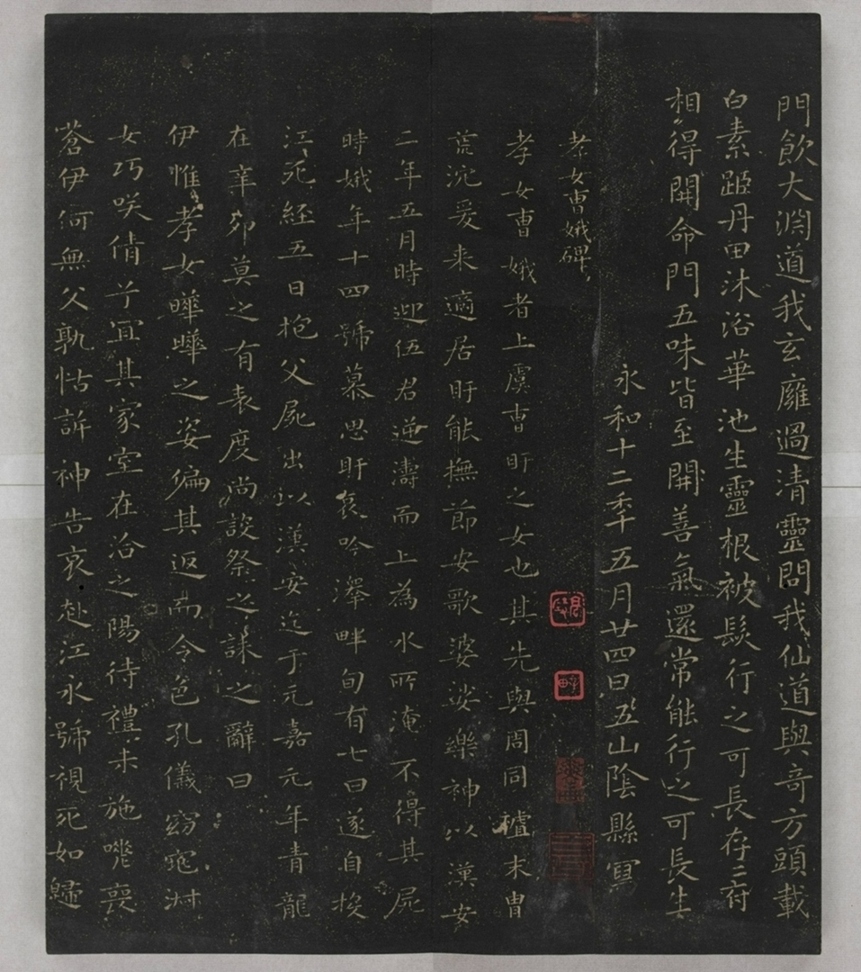 門飲大淵道我玄廱過清靈問我仙道與奇方頭載
白素距丹田沐浴華池生靈根被髮行之可長存三府
相得開命門五味皆至開善氣還常能行之可長生
永和十二年五月廿四日五山陰縣寫
孝女曹娥碑
孝女曹娥者上虞曹盱之女也其先與周同祖末胄
荒沈爰来適居盱能撫節安歌婆娑樂神以漢安
二年五月時迎伍君逆濤而上為水所淹不得其屍
時娥年十四號慕思盱哀吟澤畔旬有七日遂自投
江死經五日抱父屍出以漢安迄于元嘉元年青龍
在辛卯莫之有表度尚設祭之誄之辭曰
伊惟孝女曄曄之姿偏其返而令色孔儀窈窕淑
女巧咲倩兮宜其家室在洽之陽待禮未施嗟喪
蒼伊何無父孰怙訴神告哀赴江永號視死如歸